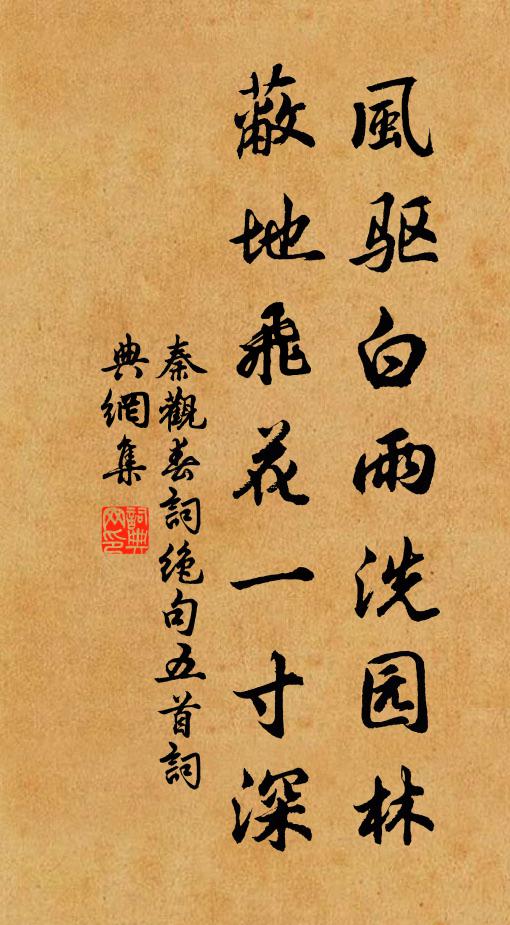 風驱白雨洗园林
蔽地飛花一寸深
秦觀春詞绝句五首詞
典網集
詞典網印